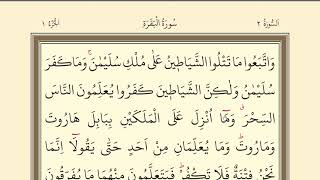 السُّورَةُ ٢ سُورَةُ الْبَقَرَةِ الْجُزْءُ ١
وَاتَّبَعُوا مَا تَتْلُوا الشَّيَاطِينُ عَلٰى مُلْكِ سُلَيْمٰنَ ۚ وَمَا كَفَرَ
سُلَيْمٰنُ وَلٰكِنَّ الشَّيَاطِينَ كَفَرُوا يُعَلِّمُونَ النَّاسَ
السِّحْرَ ۗ وَمَٓا اُنْزِلَ عَلَى الْمَلَكَيْنِ بِبَابِلَ هَارُوتَ
وَمَارُوتَ ۜ وَمَا يُعَلِّمَانِ مِنْ اَحَدٍ حَتّٰى يَقُولَٓا اِنَّمَا
نَحْنُ فِتْنَةٌ فَلَا تَكْفُرْ ۜ فَيَتَعَلَّمُونَ مِنْهُمَا مَا يُفَرِّقُونَ